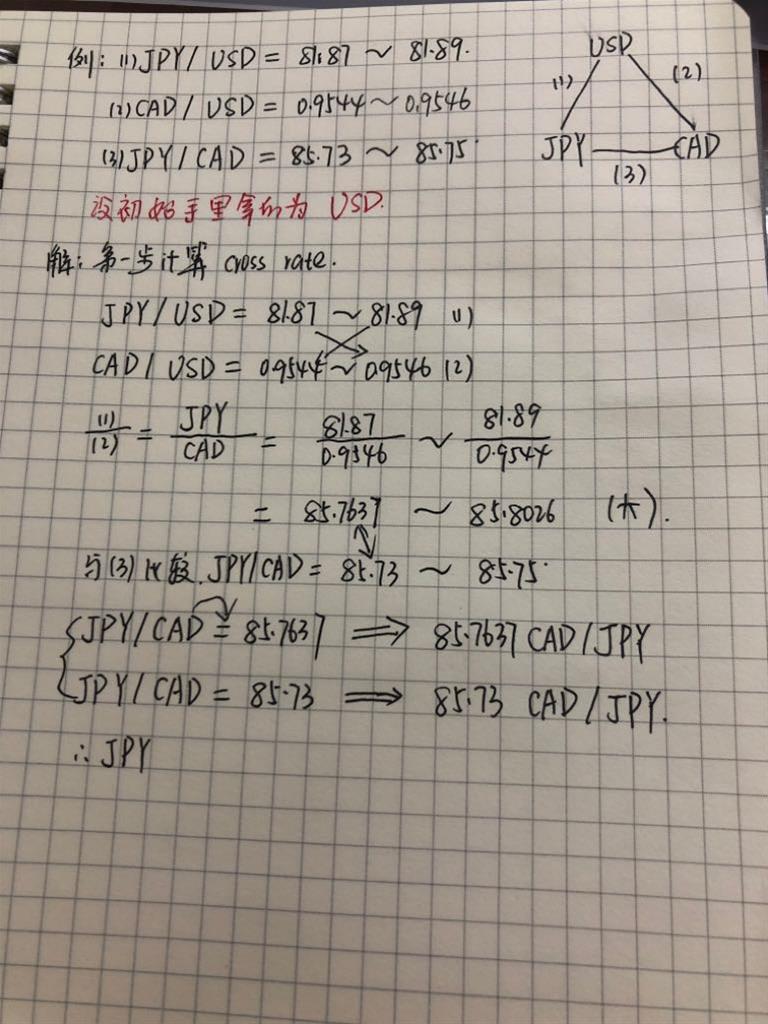 例: (1) JPY / USD = 81.87 ~ 81.89.
(2) CAD / USD = 0.9544 ~ 0.9546
(3) JPY / CAD = 85.73 ~ 85.75
USD
(1)
(2)
JPY
CAD
(3)
设初始手里拿的为 USD.
解: 第一步计算 cross rate.
JPY / USD = 81.87 ~ 81.89 (1)
CAD / USD = 0.9544 ~ 0.9546 (2)
(1)/(2) = JPY/CAD = 81.87/0.9546 ~ 81.89/0.9544
= 85.7637 ~ 85.8026 (大).
与(3)比较. JPY/CAD = 85.73 ~ 85.75
JPY/CAD = 85.7637 ⟹ 85.7637 CAD/JPY
JPY/CAD = 85.73 ⟹ 85.73 CAD/JPY.
∴ JPY